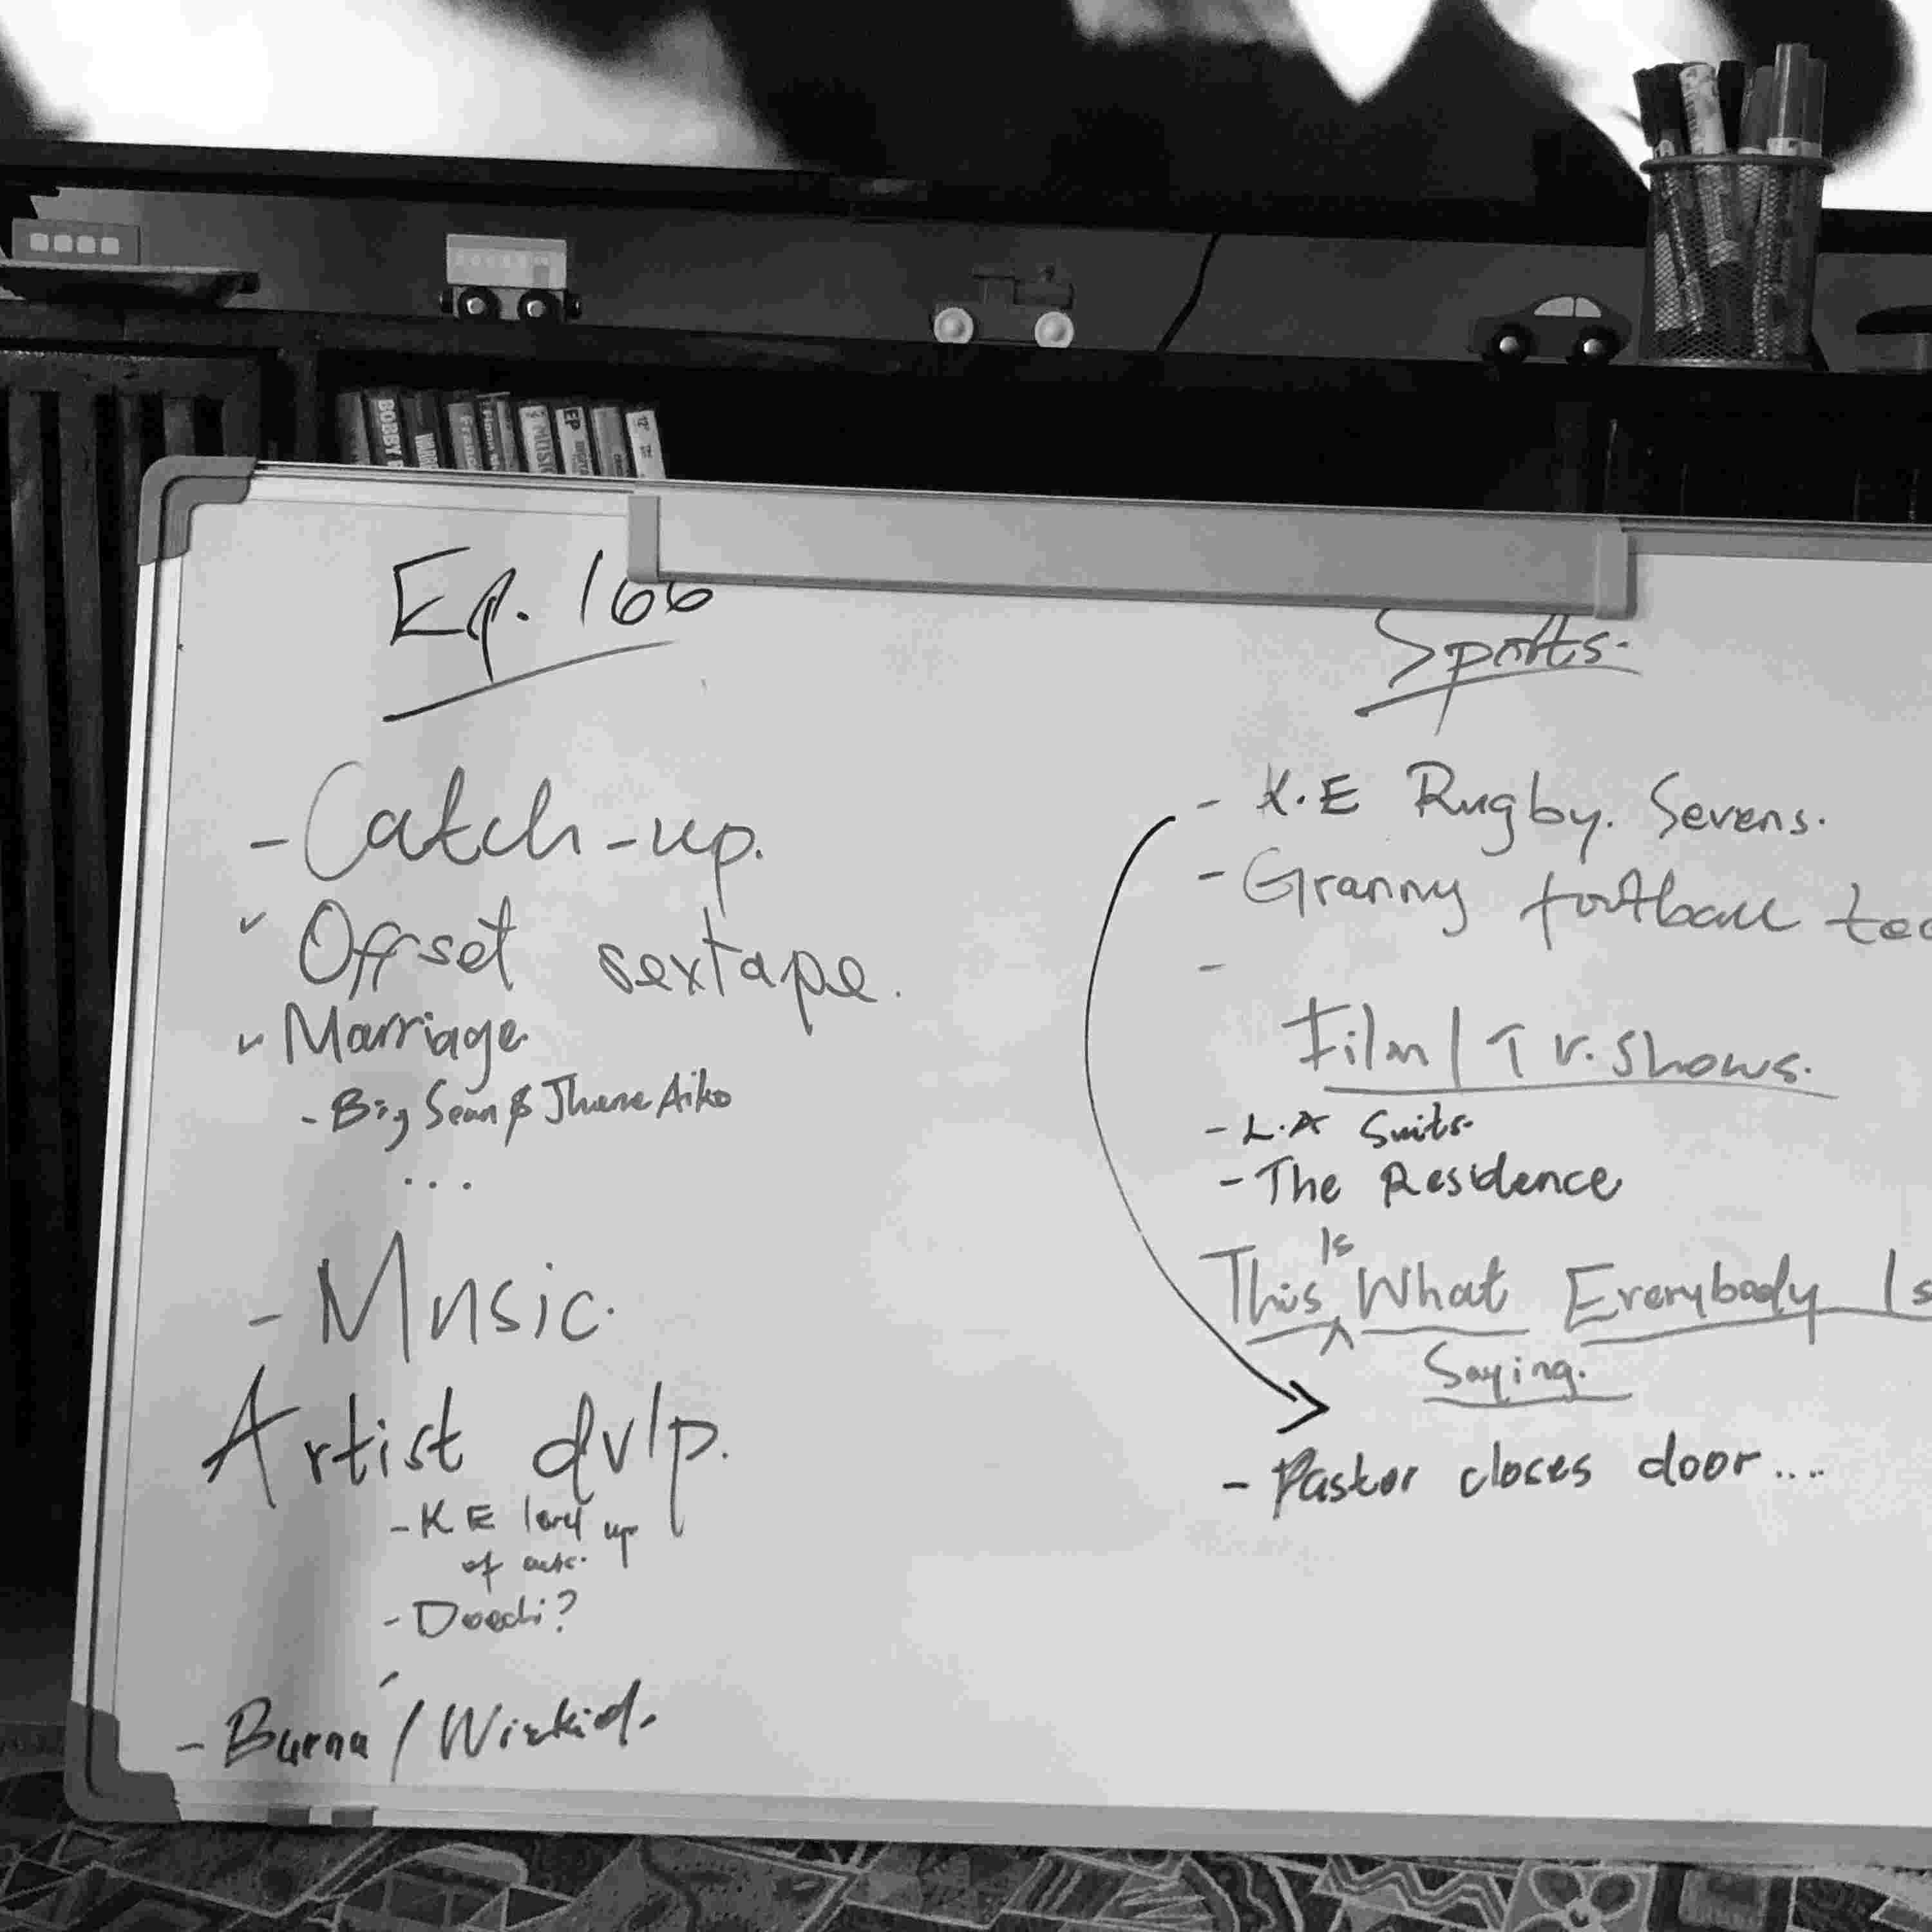 BOBBY
MUSIC
EP
Ep. 166
- Catch-up.
✓ Offset sextape.
✓ Marriage
- Big Sean & Jhene Aiko
...
- Music.
Artist dvlp.
- KE level up
of
- Doechi?
- Burna / Wizkid.
Sports.
- K.E Rugby. Sevens.
- Granny football
-
Film / T V. Shows.
- L.A Suits.
- The Residence
Is
This ^ What Everybody Is
Saying.
- Pastor closes door....